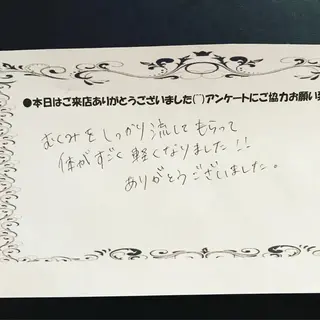 ●本日はご来店ありがとうございました(¨)アンケートにご協力お願い
むくみをしっかり流してもらって
体がすごく軽くなりました!!
ありがとうございました。